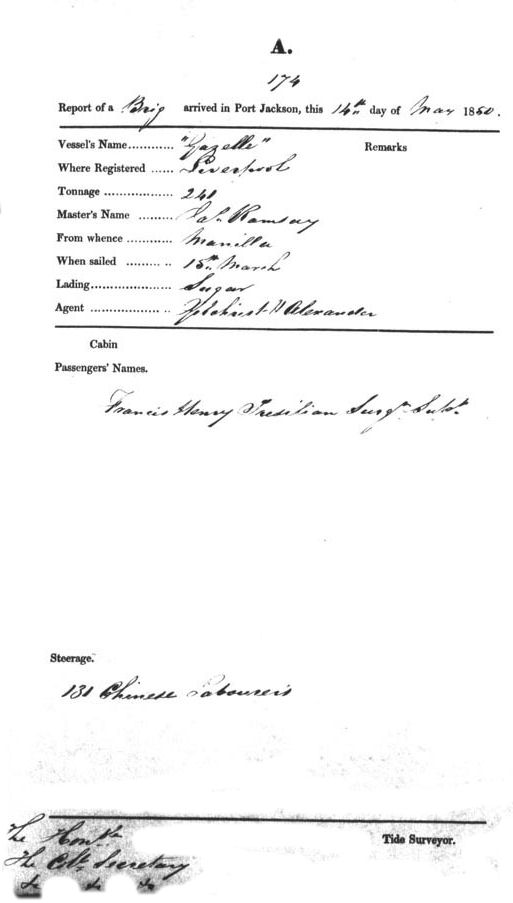 A.
174
Report of a Brig arrived in Port Jackson, this 14th day of May 1850.
Vessel's Name............ "Gazelle" Remarks
Where Registered ...... Liverpool
Tonnage .................. 241
Master's Name ......... Jas. Ramsay
From whence ............ Manilla
When sailed ......... .. 15th March
Lading..................... Sugar
Agent .................. .. Gilchrist & Alexander
Cabin
Passengers' Names.
Francis Henry Tresilian Surgn. Supt.
Steerage.
131 Chinese Labourers
Tide Surveyor.
The Honble
The Coll. Secretary
&c &c &c